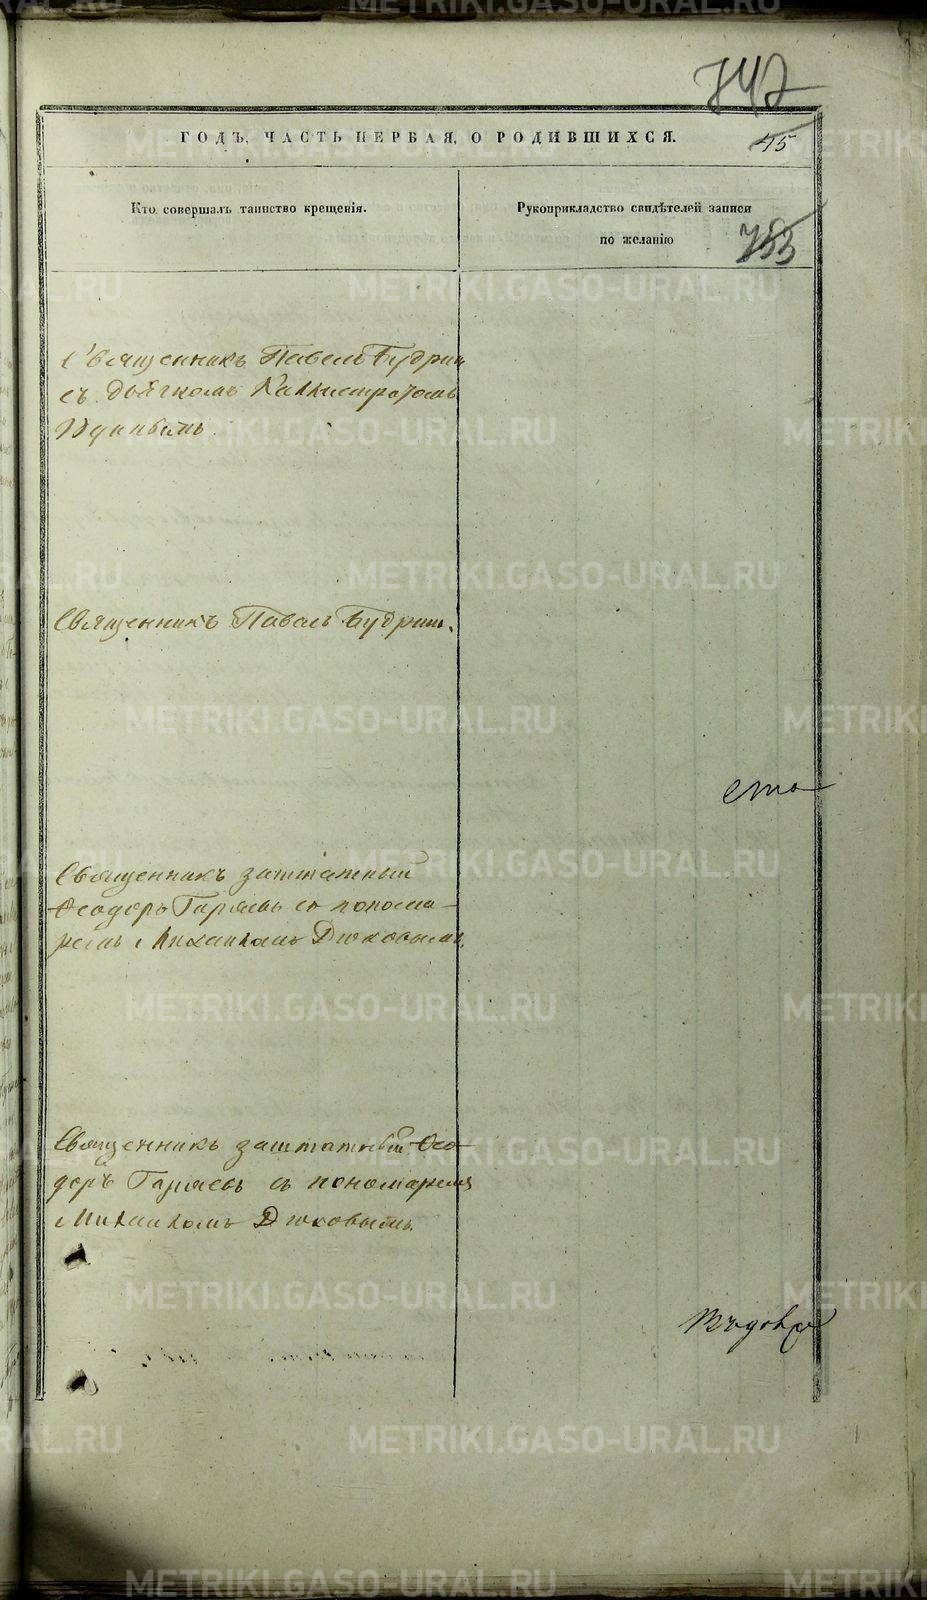 742
ГОДЪ, ЧАСТЬ ПЕРВАЯ, О РОДИВШИХСЯ.
45
Кто совершалъ таинство крещенія.
Рукоприкладство свидѣтелей записи
по желанію
753
Священникъ Павелъ Будрин
съ дьячкомъ Каллистратомъ
Священникъ Павелъ Будринъ.
ста
Священникъ заштатный
Ѳеодоръ Гаряевъ съ понома-
ремъ Михаиломъ Дюковымъ.
Священникъ заштатный Ѳео-
доръ Гаряевъ съ пономаремъ
Михаиломъ Дюковымъ.
METRIKI.GASO-URAL.RU